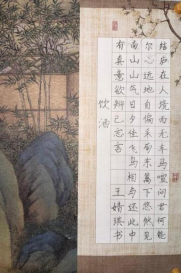 结庐在人境而无车马喧问君何能
尔心远地自偏采菊东篱下悠然见
南山山气日夕佳飞鸟相与还此中
有真意欲辨已忘言 王婧琪书
饮酒